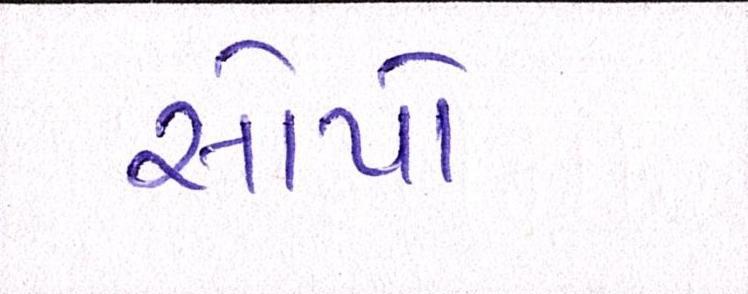 સોપો